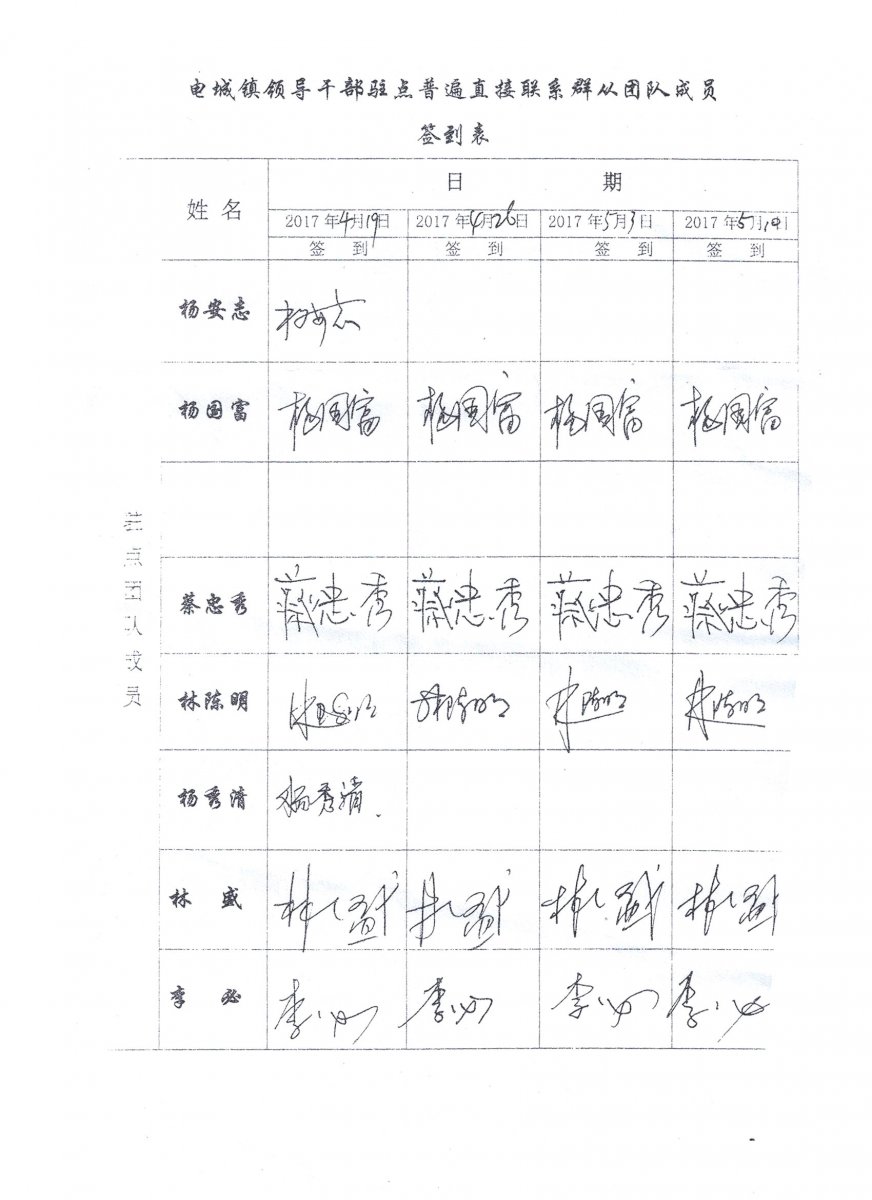 电城镇领导干部驻点普遍直接联系群从团队成员
签到表
姓名 日 期
2017年4月19日 2017年4月26日 2017年5月3日 2017年5月10日
签 到 签 到 签 到 签 到
驻点团队成员
杨安志 杨安志
杨国富 杨国富 杨国富 杨国富 杨国富
蔡忠秀 蔡忠秀 蔡忠秀 蔡忠秀 蔡忠秀
林陈明 林陈明 林陈明 林陈明 林陈明
杨秀清 杨秀清
林 盛 林盛 林盛 林盛 林盛
李 必 李必 李必 李必 李必